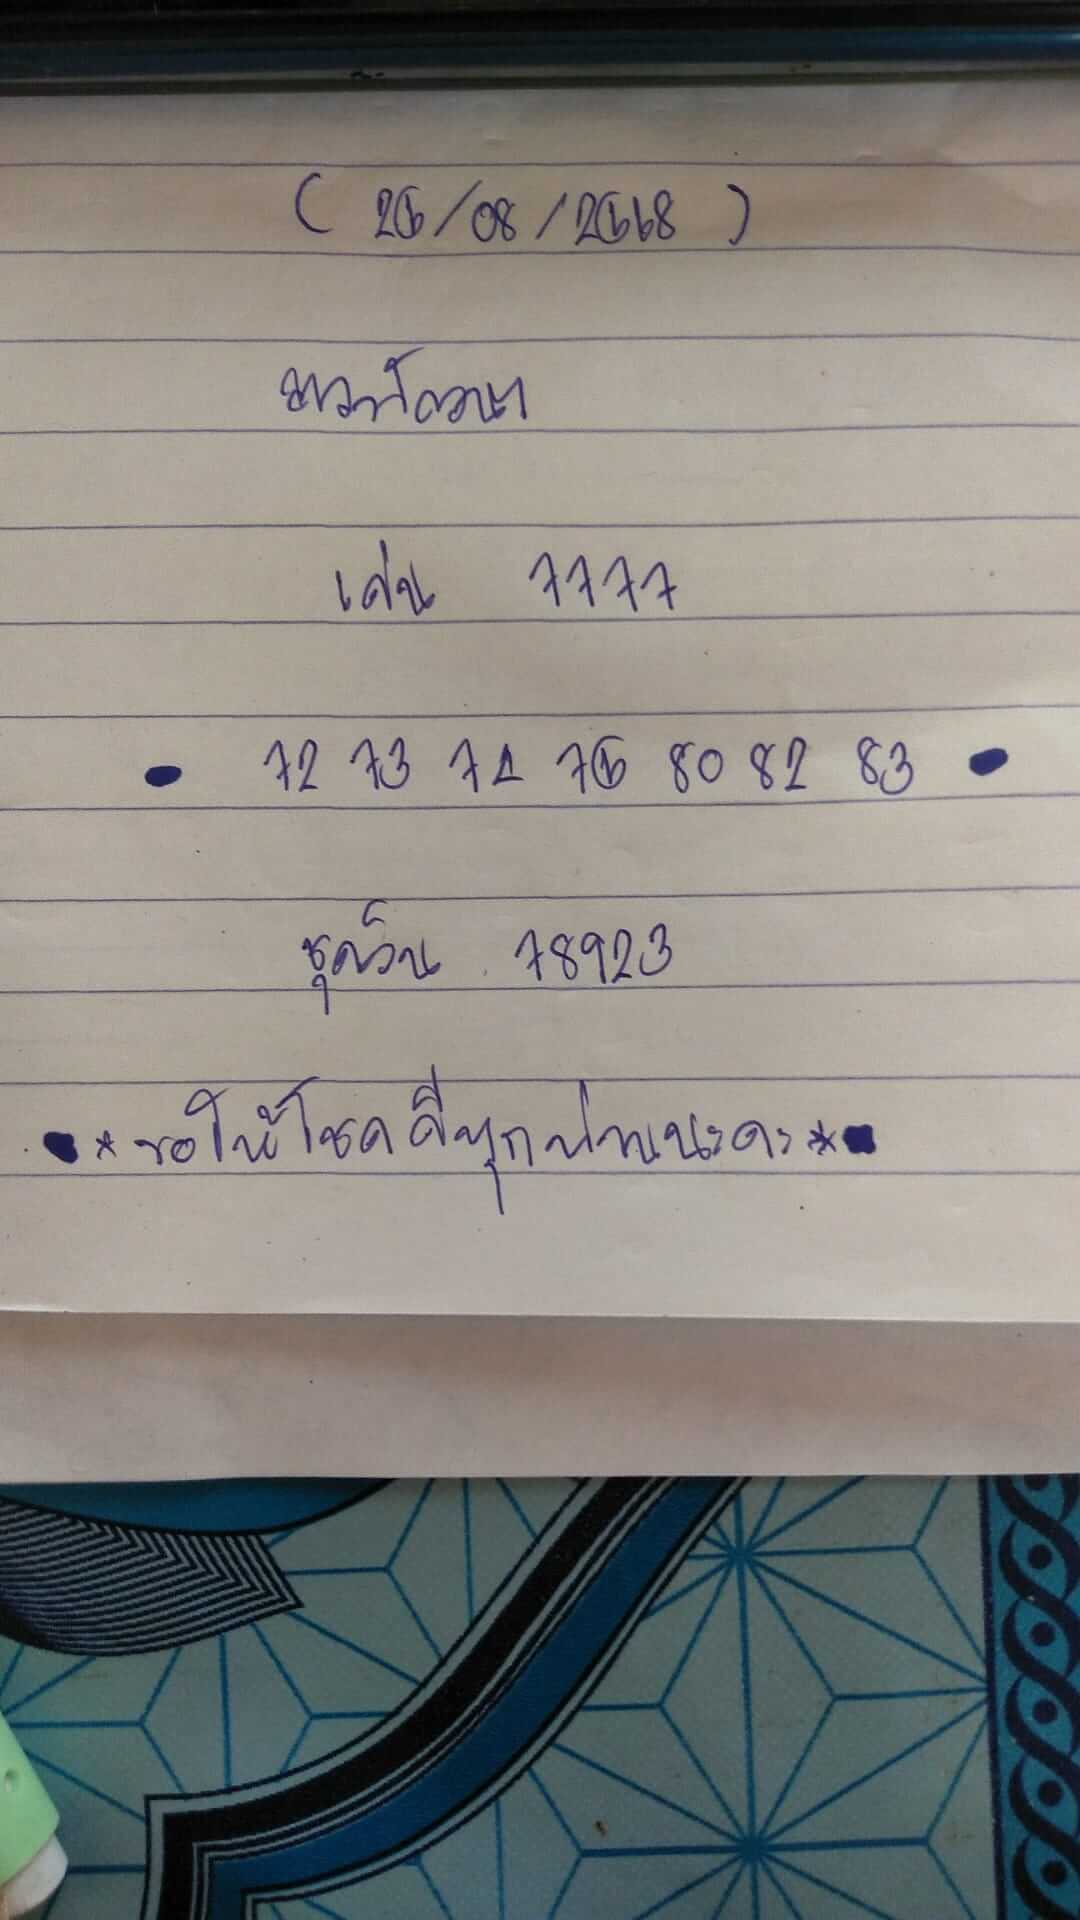 ( 25/08/2568 )
เด่น 7777
• 72 73 74 75 80 82 83 •
ชุดวิน 78923
• * ขอให้โชคดีทุกท่านนะคะ * •